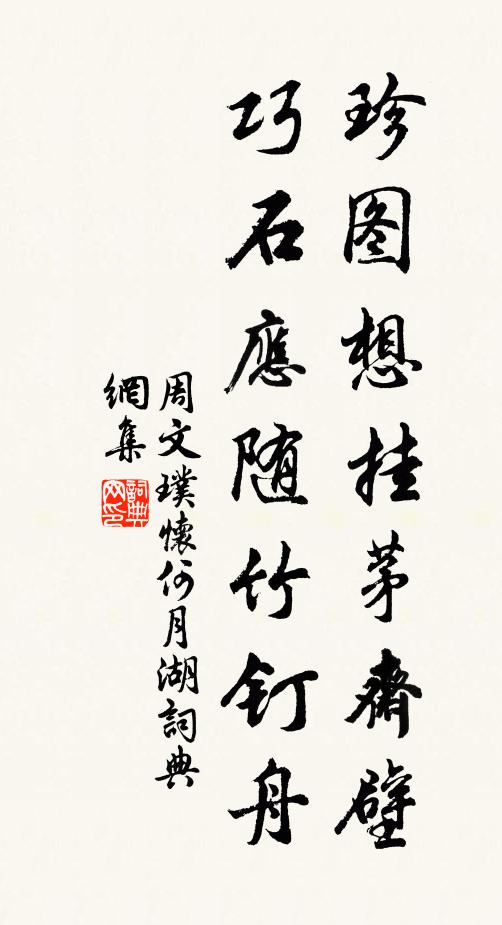 珍图想挂茅斋壁
巧石應随竹钉舟
周文璞懷何月湖詞典
網集
詞典網印